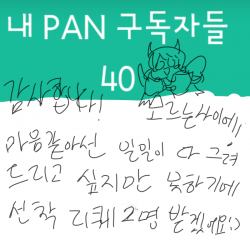 내 PAN 구독자들
40
감사합니다! 모르는사이에,,
마음같아선 일일이 다 그려
드리고 싶지만 못하기에
선착 리퀘 2명 받겠어요!:)